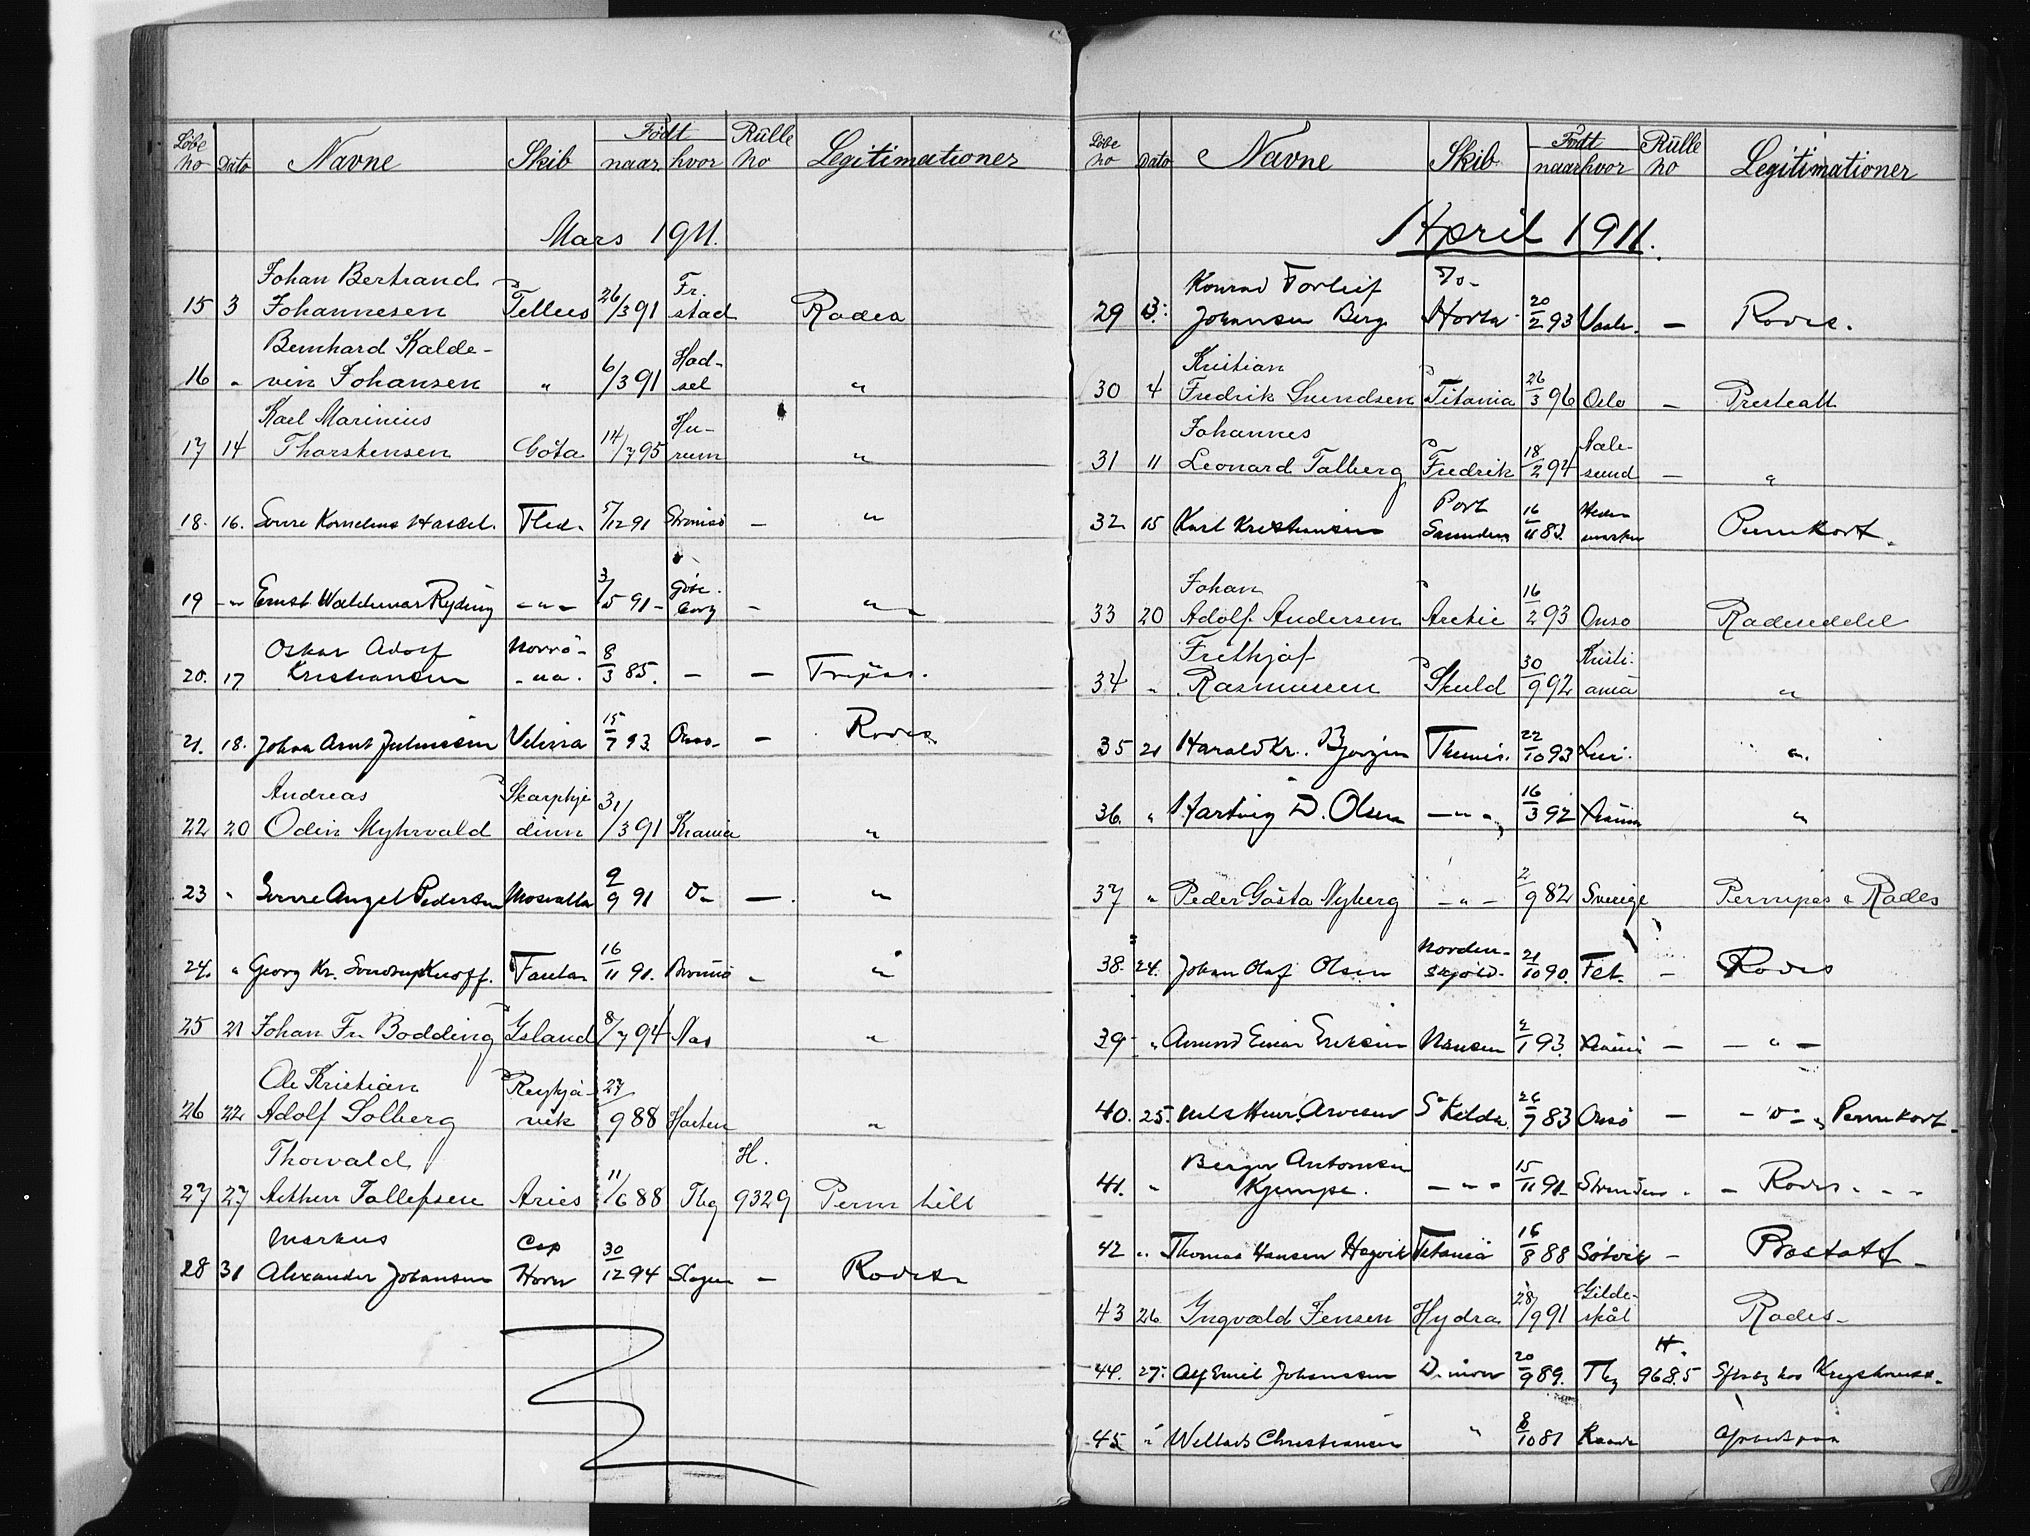 Løbe no Dato Navne Skib Født naar hvor Rulle no Legitimationer
Mars 1911.
Johan Bertrand Fr.
15 3 Johannesen Tellus 26/3 91 stad Rades
Bernhard Kalde- Had-
16 " vin Johansen " 6/3 91 sel "
Karl Marinius Hu-
17 14 Thorstensen Göta 14/7 95 rum "
18. 16. Sverre Kornelius Hassel. Fled. 5/12 91 Strömsö — "
Göte-
19 -"- Ernst Waldemar Ryding -"- 3/5 91 borg — "
Oskar Adolf Norrö-
20. 17 Kristiansen na. 8/3 85. — — Tripas.
21. 18. Johan Arnt Juliussen Velina 15/7 93. Onsö — Rades
Andreas Skarphje
22 20 Odin Myhrvald dinn 31/3 91 Krania "
23 " Sverre Angel Pedersen Mosvalla 2/9 91 Do — "
24. " Georg Kr. Sverdrup Knoff. Fanta 16/11 91. Brönnö - "
25 21 Johan Fr. Bodding Island 8/7 94 Nas "
Ole Kristian Reykja-
26 22 Adolf Solberg vik 27/9 88 Horten "
Thorvald H.
27 27 Arthur Tollefsen Aries 11/6 88 Tbg 9329 Perm till
Markus Cap
28 31 Alexander Johansen Horn 30/12 94 Slagen — Rades
Løbe no Dato Navne Skib Født naar hvor Rulle no Legitimationer
April 1911.
Konrad Torleif S/o-
29 3. Johansen Berg Horta 20/2 93 Vaaler. — Rades.
Kristian
30 4 Fredrik Svendsen Titania 26/3 96 Oslo — Presteatt
Johannes Aale-
31 11 Leonard Talberg Fredrik 18/2 94 sund — "
Port Heden
32 15 Karl Kristiansen Saunders 16/11 83. marken Permkort.
Johan
33 20 Adolf Andersen Arctic 16/2 93 Onsö Radeseddel
Frithjof Kristi-
34 " Rasmussen Skuld 30/9 92 ania "
35 21 Harald Kr. Bjorgen Themis. 22/10 93 Lier. "
36. " Hartvig D. Olsen —"— 16/3 92 Xiania "
37 " Peder Gösta Nyberg —"— 2/9 82 Sverige Permpas & Rades
Norden-
38. 24. Johan Olaf Olsen skjöld. 21/10 90. Fet. — Rades
39 " Amund Einar Eriksen Nansen 2/1 93. Xiania — — " —
40. 25. Nils Henr. Arvesen St Kilda 26/7 83 Onsö — - Do - , Permkort.
Berger Antonsen
41. " Kjempe. — " - 15/11 91 - Rades - - -
42 " Thomas Hansen Hagvik Titania 16/8 88 Söbvik — Prestatt
Gilde-
43 26 Ingvald Jensen Hydra 28/9 91 skål Rades-
H.
44. 27. Alf Emil Johanssen 20/9 89. Tbg 9685
45 " Christiansen " 8/10 81 Raade